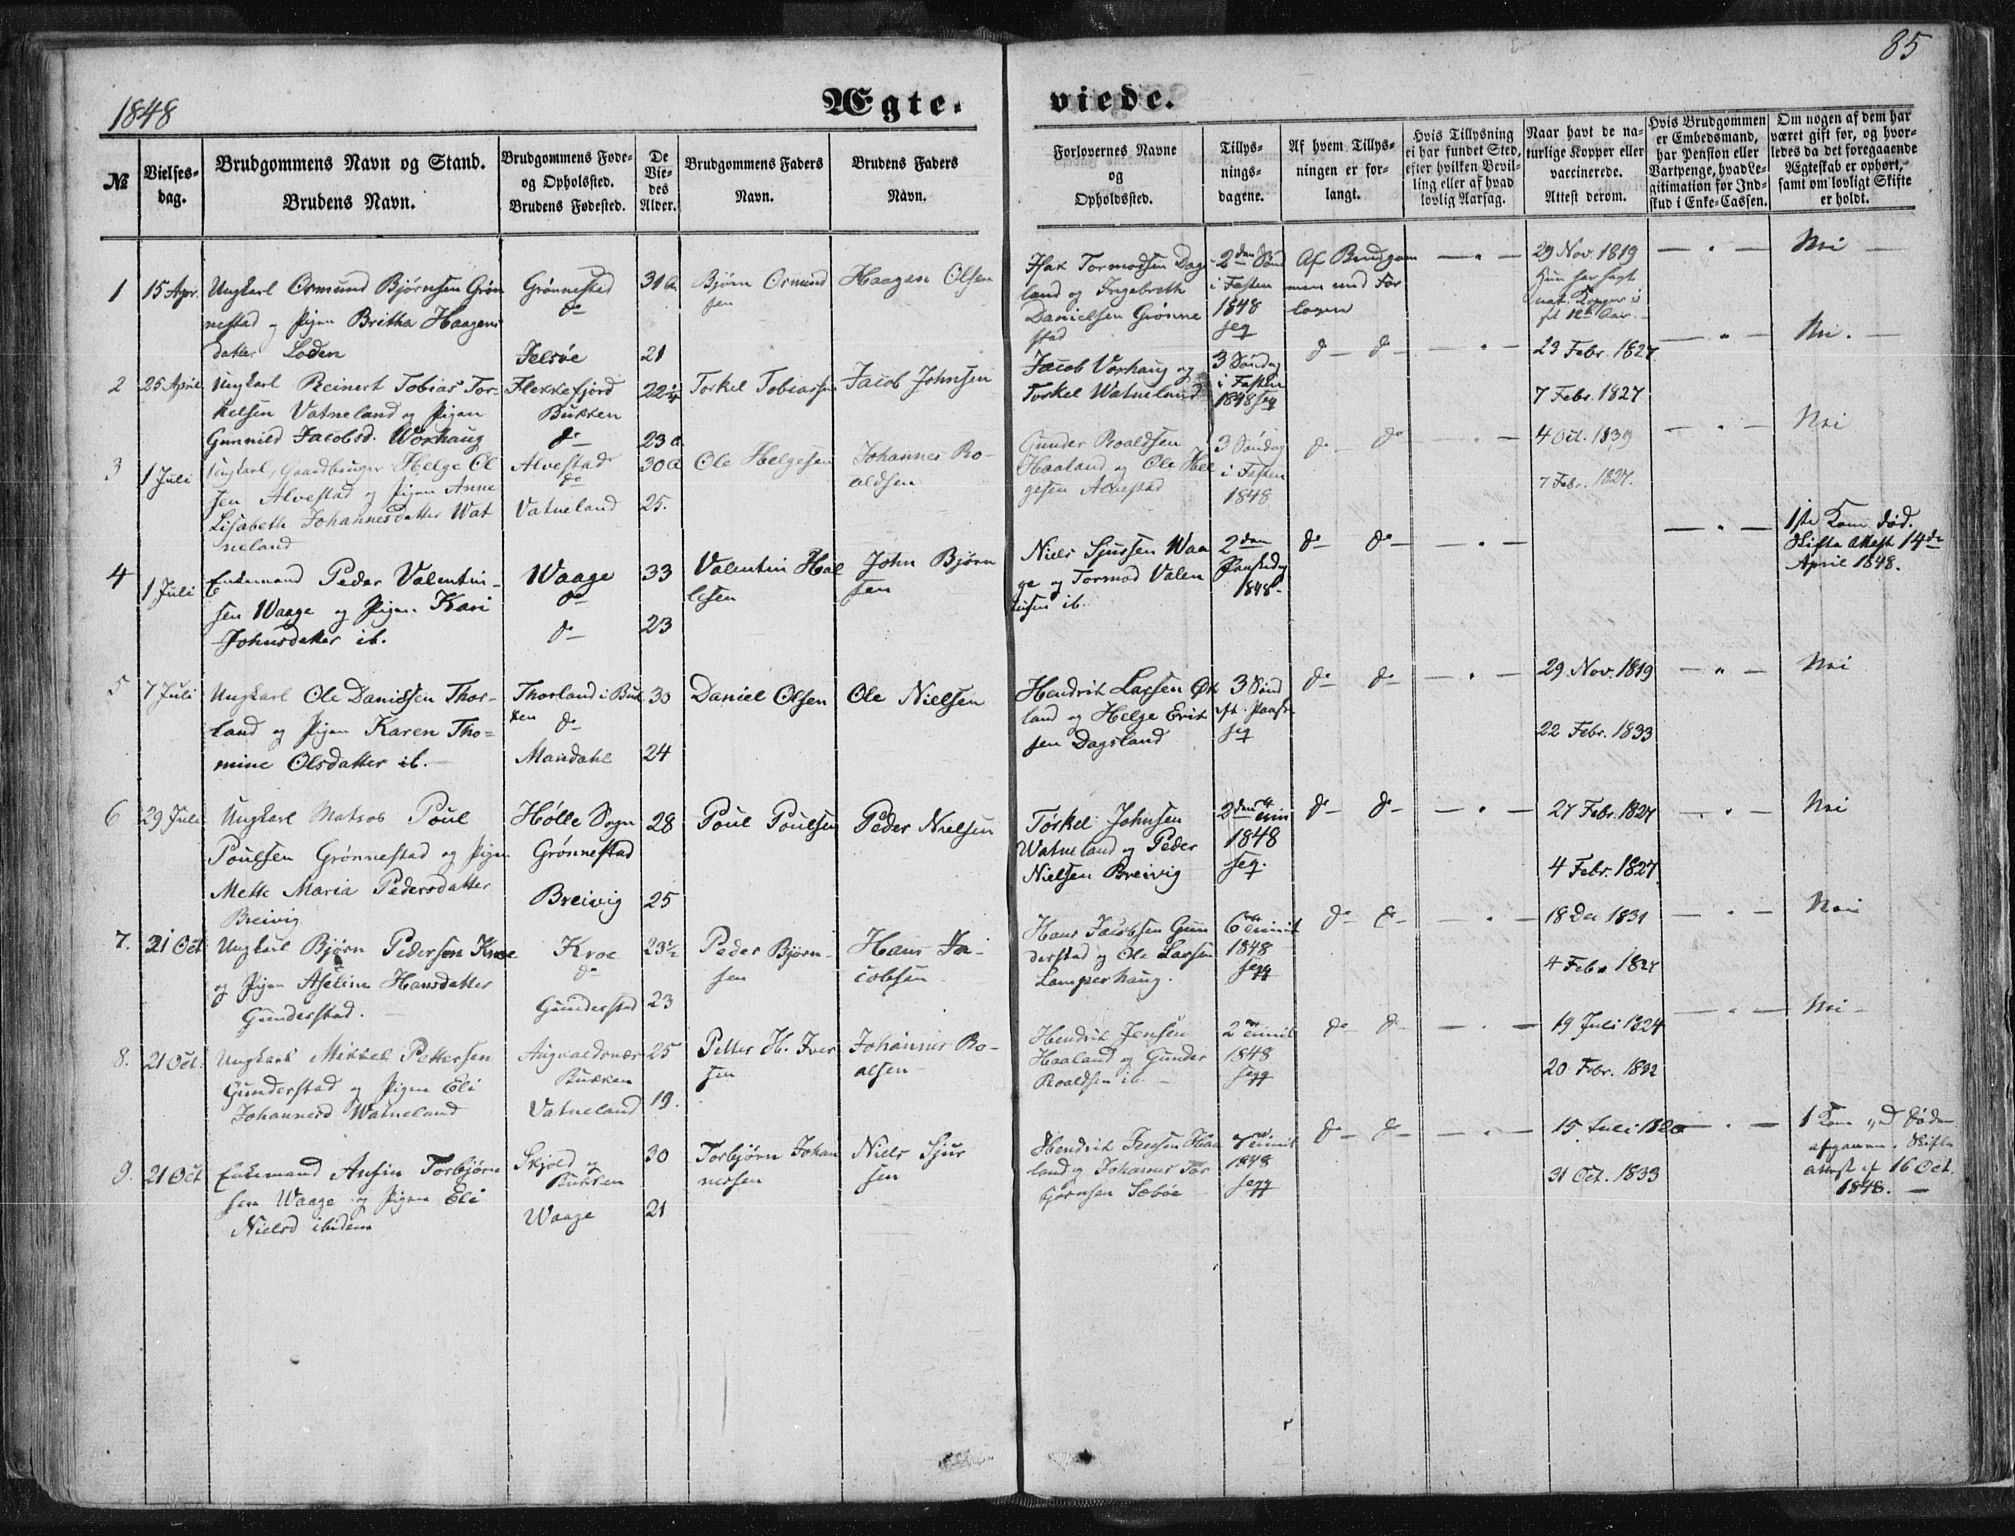 1848
Ægte-
viede.
85
№
Vielses-
dag.
Brudgommens Navn og Stand.
Brudens Navn.
Brudgommens Føde-
og Opholdssted.
Brudens Fødested.
De
Vie-
des
Alder.
Brudgommens Faders
Navn.
Brudens Faders
Navn.
Forlovernes Navne
og
Opholdssted.
Tillys-
nings-
dagene.
Af hvem Tillys-
ningen er for-
langt.
Hvis Tillysning
ei har fundet Sted,
efter hvilken Bevil-
ling eller af hvad
lovlig Aarsag.
Naar havt de na-
turlige Kopper eller
vaccinerede.
Attest derom.
Hvis Brudgommen
er Embedsmand,
har Pension eller
Vartpenge, hvad Le-
gitimation for Ind-
skud i Enke-Cassen.
Om nogen af dem har
været gift før, og hvor-
ledes da det foregaaende
Ægteskab er ophørt,
samt om lovligt Skifte
er holdt.
1
15 Apr.
Ungkarl Ormund Bjørnsen Grøn
nestad og Pigen Britha Haagens
datter Loden
Grønnestad
do
Jelsøe
31 a
21
Bjørn Ormund
sen
Haagen Olsen
Isak Tormodsen Dags
land og Ingebreth
Danielsen Grønne
stad
2den Sønd
i Fasten
1848
seq
Af Brudgom
men med For
loveren
29 Nov. 1819
Hun har havt
nat. Kopper i
Nei
2
25 April
Ungkarl Reinert Tobias Tor-
kelsen Vatneland og Pigen
Gunnild Jacobsd. Worhaug
Flekkefjord
Bukken
do
22 1/4
23 a
Torkel Tobiassen
Jacob Johnsen
Jacob Vorhaug og
Torkel Watneland
3 Søndag
i Fasten
1848 seq
do do
23 Febr. 1827
7 Febr. 1827
Nei.
3
1 Juli
Ungkarl, Gaardbruger Helge Ol
sen Alvestad og Pigen Anne
Lisabeth Johannesdatter Wat
neland
Alvestad
do
Vatneland
30 a
25.
Ole Helgesen
Johannes Ro-
aldsen
Gunder Roaldsen
Haaland og Ole Hel
gesen Alvestad
3 Søndag
i Fasten
1848
do do
4 Oct. 1839
7 Febr. 1827.
Nei
4
1 Juli
Enkemand Peder Valentin-
sen Waage og Pigen Kari
Johnsdatter ib.
Waage
do
do
33
23
Valentin Hal
lesen
John Bjørn
sen
Niels Sjursen Waa
ge og Tormod Valen
tinsen ib.
2den
Pinsedag
1848.
do do
1ste Kone død.
Skifte Attest 14de
April 1848.
5
7 Juli
Ungkarl Ole Danielsen Thor-
land og Pigen Karen Tho-
mine Olsdatter ib.
Thorland i Buk
ken
do
Mandahl
30
24
Daniel Olsen
Ole Nielsen
Hendrik Larsen Øk
land og Helge Erik
sen Dagsland
3 Sønd
eft. Paaske
seq
do do
29 Nov. 1819
22 Febr. 1833
Nei
6
29 Juli
Ungkarl Matros Poul
Poulsen Grønnestad og Pigen
Mette Maria Pedersdatter
Breivig
Hølle Sogn
Grønnestad
Breivig
28
25
Poul Poulsen
Peder Nielsen
Torkel Johnsen
Watneland og Peder
Nielsen Breivig
2den
1848
seq.
do do
27 Febr. 1827
4 Febr. 1827.
Nei
7.
21 Oct
Ungkarl Bjørn Pedersen Kroe
og Pigen Aseline Hansdatter
Gunderstad.
Kroe
do
Gunderstad
23 1/2
23
Peder Bjørn-
sen
Hans Ja-
cobsen
Hans Jacobsen Gun
derstad og Ole Larsen
Lamperhaug.
6
1848
seqq
do do
18 Dec 1831
4 Febr 1827
Nei
8.
21 Oct.
Ungkarl Mikkel Pettersen
Gunderstad og Pigen Eli
Johannesd Watneland
Augvaldsnæs
Bukken
Vatneland
25
19.
Petter H. Iver
sen
Johannes Ro-
alsen
Hendrik Jensen
Haaland og Gunder
Roaldsen ib.
2
1848
seqq
do do
19 Juli 1824
20 Febr. 1832
Nei
9.
21 Oct
Enkemand Ansin Torbjørn
sen Waage og Pigen Eli
Nielsd ibidem
Skjold og
Bukken
Waage
30
21
Torbjørn Johan
nessen
Niels Sjur
sen
Hendrik Jensen Haa
land og Johannes Tor
bjørnsen Sæbøe
7
1848
seqq
do do
15 Juli 1820
31 Oct. 1833
1 Kone ved Døden
afgaaen. Skifte
attest af 16 Oct.
1848.